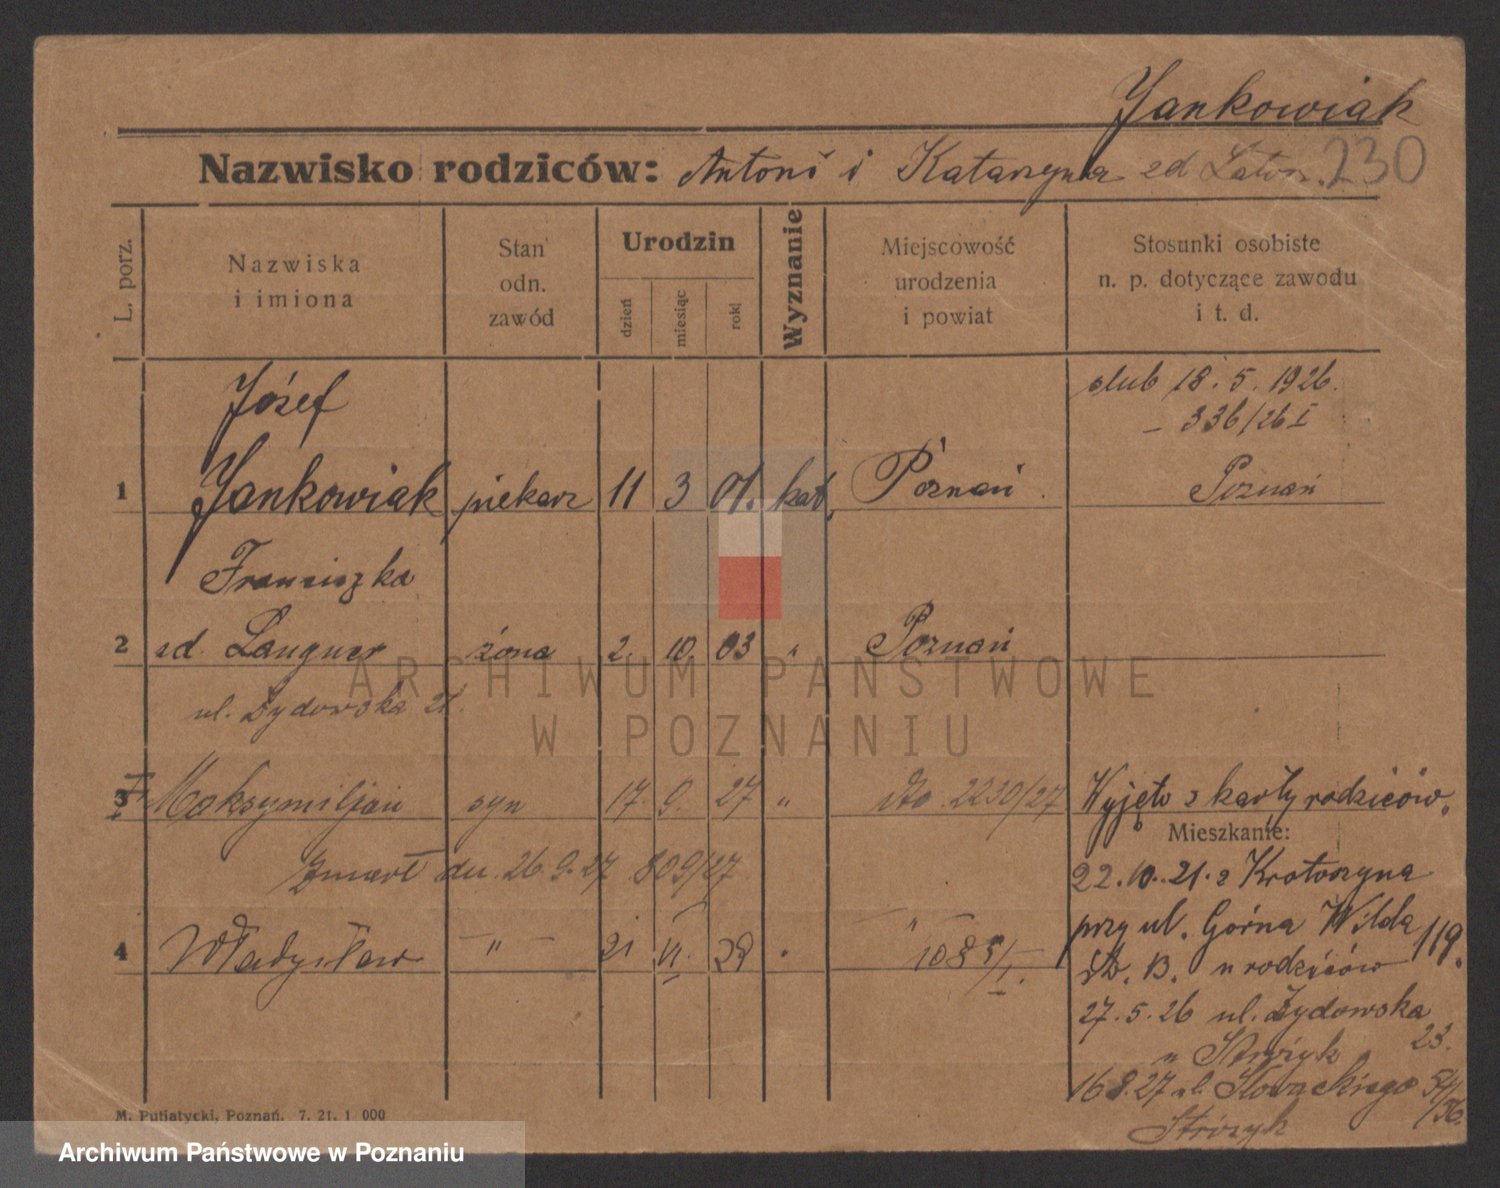 Jankowiak
Nazwisko rodziców: Antoni i Katarzyna zd 230
L. porz.
Nazwiska
i imiona
Stan
odn.
zawód
Urodzin
dzień
miesiąc
rok
Wyznanie
Miejscowość
urodzenia
i powiat
Stosunki osobiste
n. p. dotyczące zawodu
i t. d.
Józef
ślub 18. 5. 1926.
– 336/26 I
1 Jankowiak piekarz 11 3 01. kat. Poznań Poznań
Franciszka
2 zd. Langner żona 2. 10. 03 " Poznań
ul. Żydowska
3 Maksymiljan syn 17. 9. 27 " dto 2230/27 Wyjęto z karty rodziców.
Zmarł dn. 26. 9. 27 809/27
Mieszkanie:
22. 10. 21. z Krotoszyna
przy ul. Górna Wilda 119.
4 Władysław " 21 VI. 29 " " 1085/I.
B. u rodziców
27. 5. 26 ul. Żydowska 23.
u
16 8. 27 ul. Słowackiego 54/56.
M. Putiatycki, Poznań. 7. 21. 1 000
ARCHIWUM PAŃSTWOWE
W POZNANIU
Archiwum Państwowe w Poznaniu